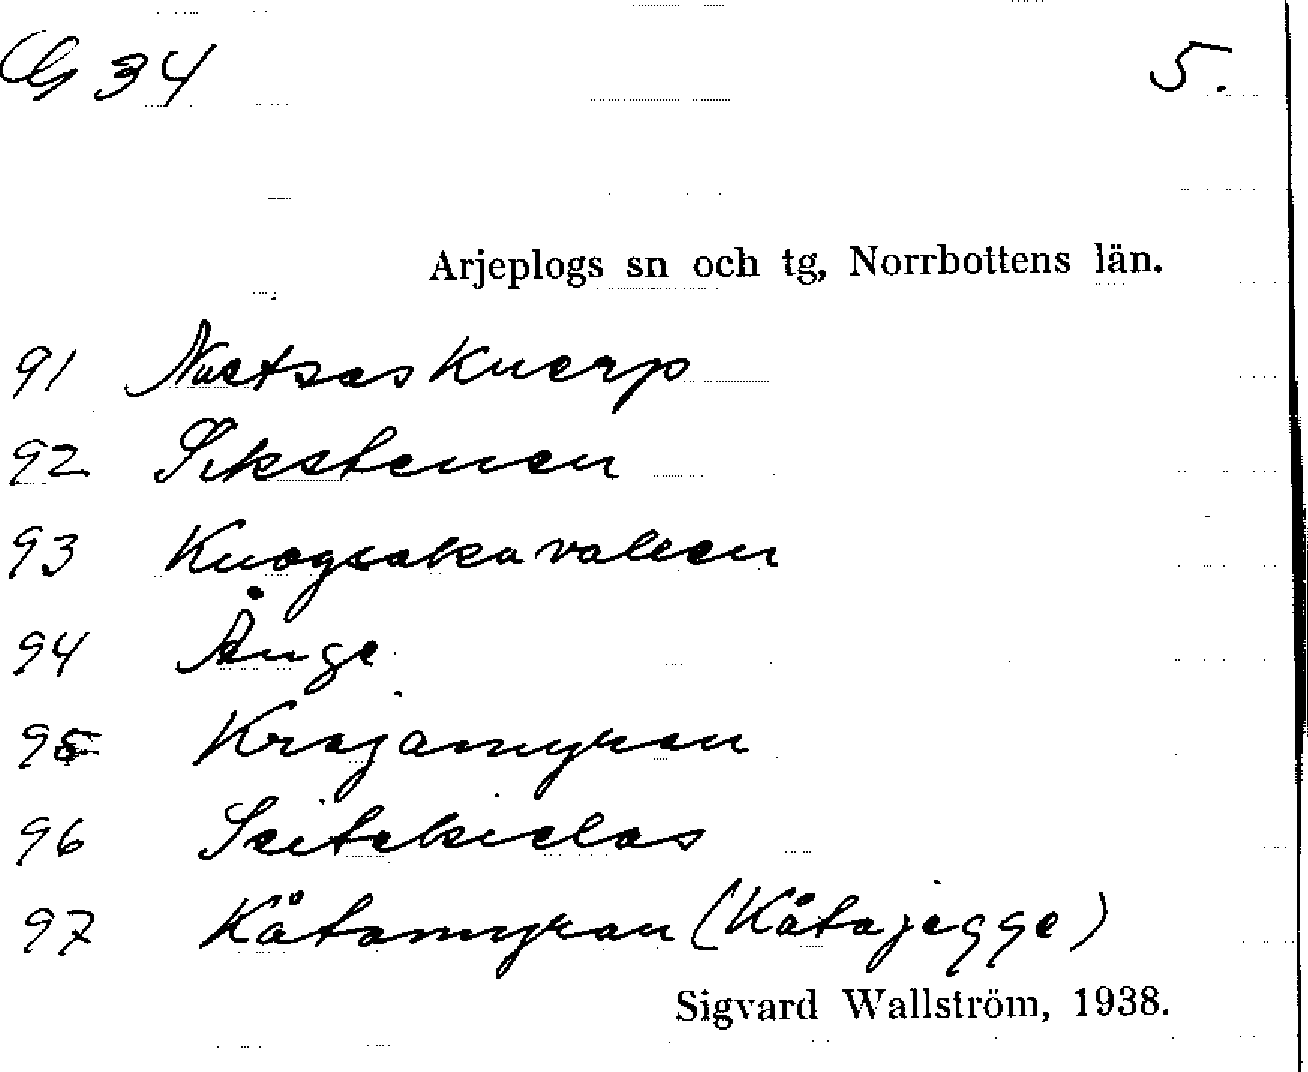 G 34 5.
Arjeplogs sn och tg, Norrbottens län.
91 Nuetsesknerp
92 Sikstenen
93 Knogsakavaleen
94 Änge
95 Krajamyran
96 Seitekielas
97 Kåtamyran (Kåtajegge)
Sigvard Wallström, 1938.